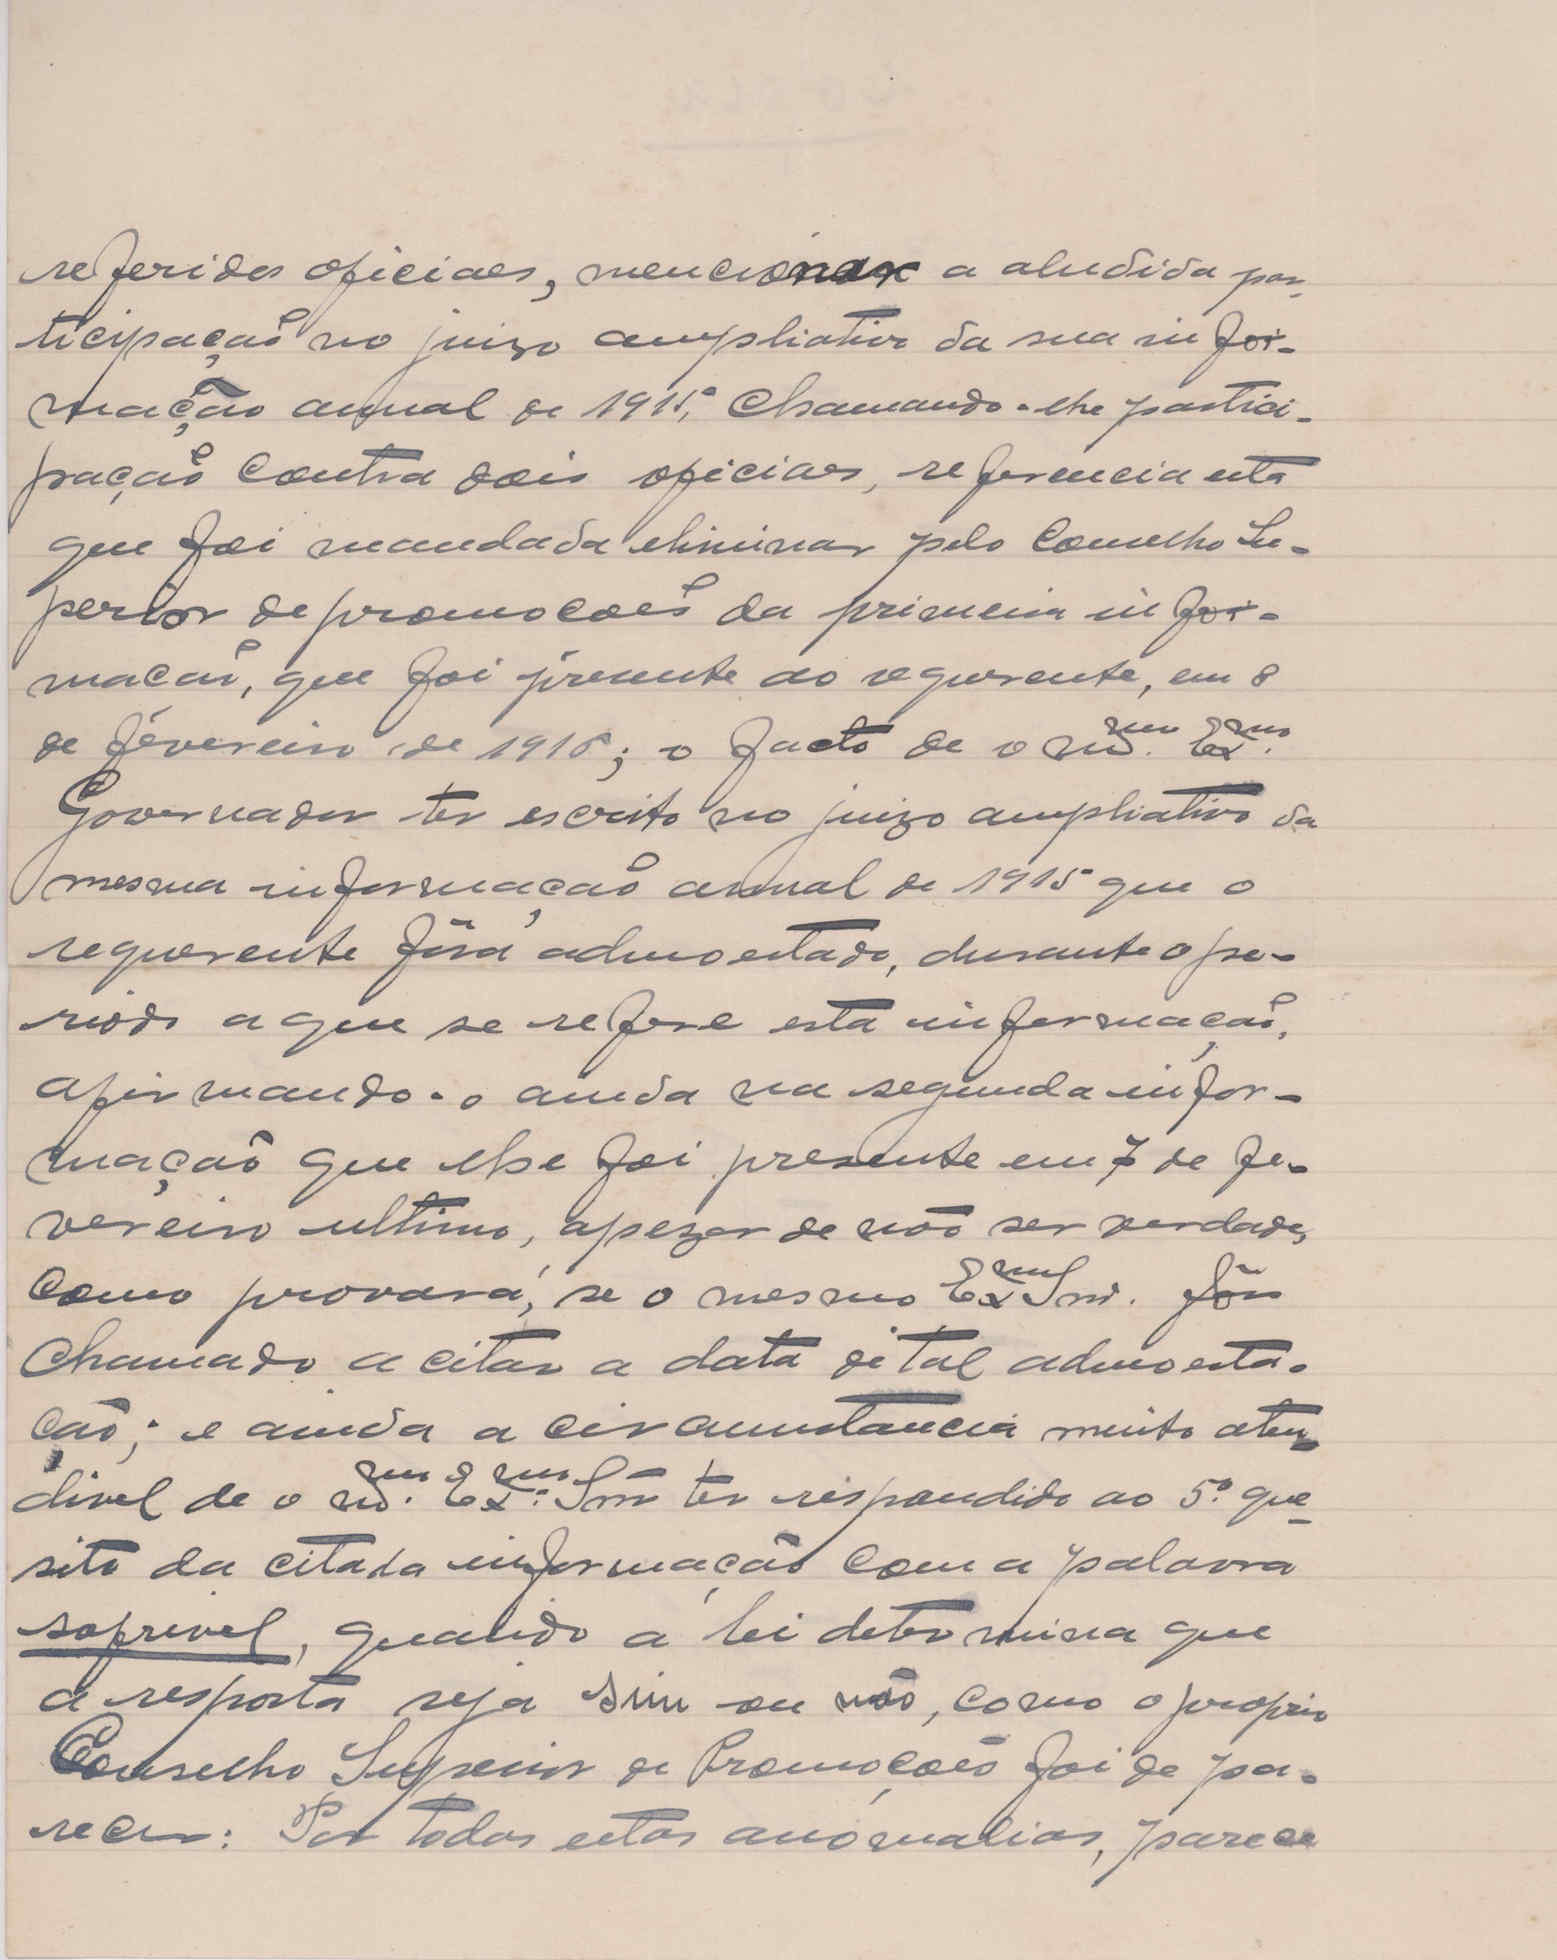 referidos oficiaes, mencionar a aludida par-
ticipação no juizo ampliativo da sua infor-
mação annual de 1915, chamando-lhe partici-
pação contra dois oficiaes, referencia esta
que foi mandada eliminar pelo Conselho Su-
perior de promocoês da primeira infor-
macaõ, que foi presente ao requerente, em 8
de fevereiro de 1916; o facto de o mmo. Exmo.
Governador ter escrito no juizo ampliativo da
mesma informaçaõ annual de 1915 que o
requerente fôra admoestado, durante o pe-
riodo a que se refere esta informaçaõ,
afirmando-o ainda na segunda infor-
maçaõ que lhe foi presente em 7 de fe-
vereiro ultimo, apezar de não ser verdade,
como provará, se o mesmo Exmo Snr. fôr
chamado a citar a data de tal admoesta-
ção; e ainda a circumstancia muito aten-
divel de o mmo. Exmo. Snr ter respondido ao 5º que-
sito da citada informação com a palavra
sofrivel, quando a lei determina que
a resposta seja sim ou não, como o proprio
Conselho Superior de Promoções foi de pa-
recer: Por todas estas anómalias, parece